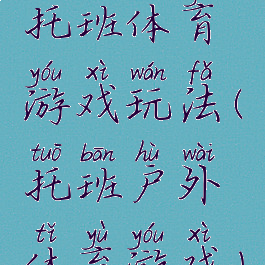 托班体育
yóu xì wán fǎ
游戏玩法(
tuō bān hù wài
托班户外
tǐ yù yóu xì
体育游戏)